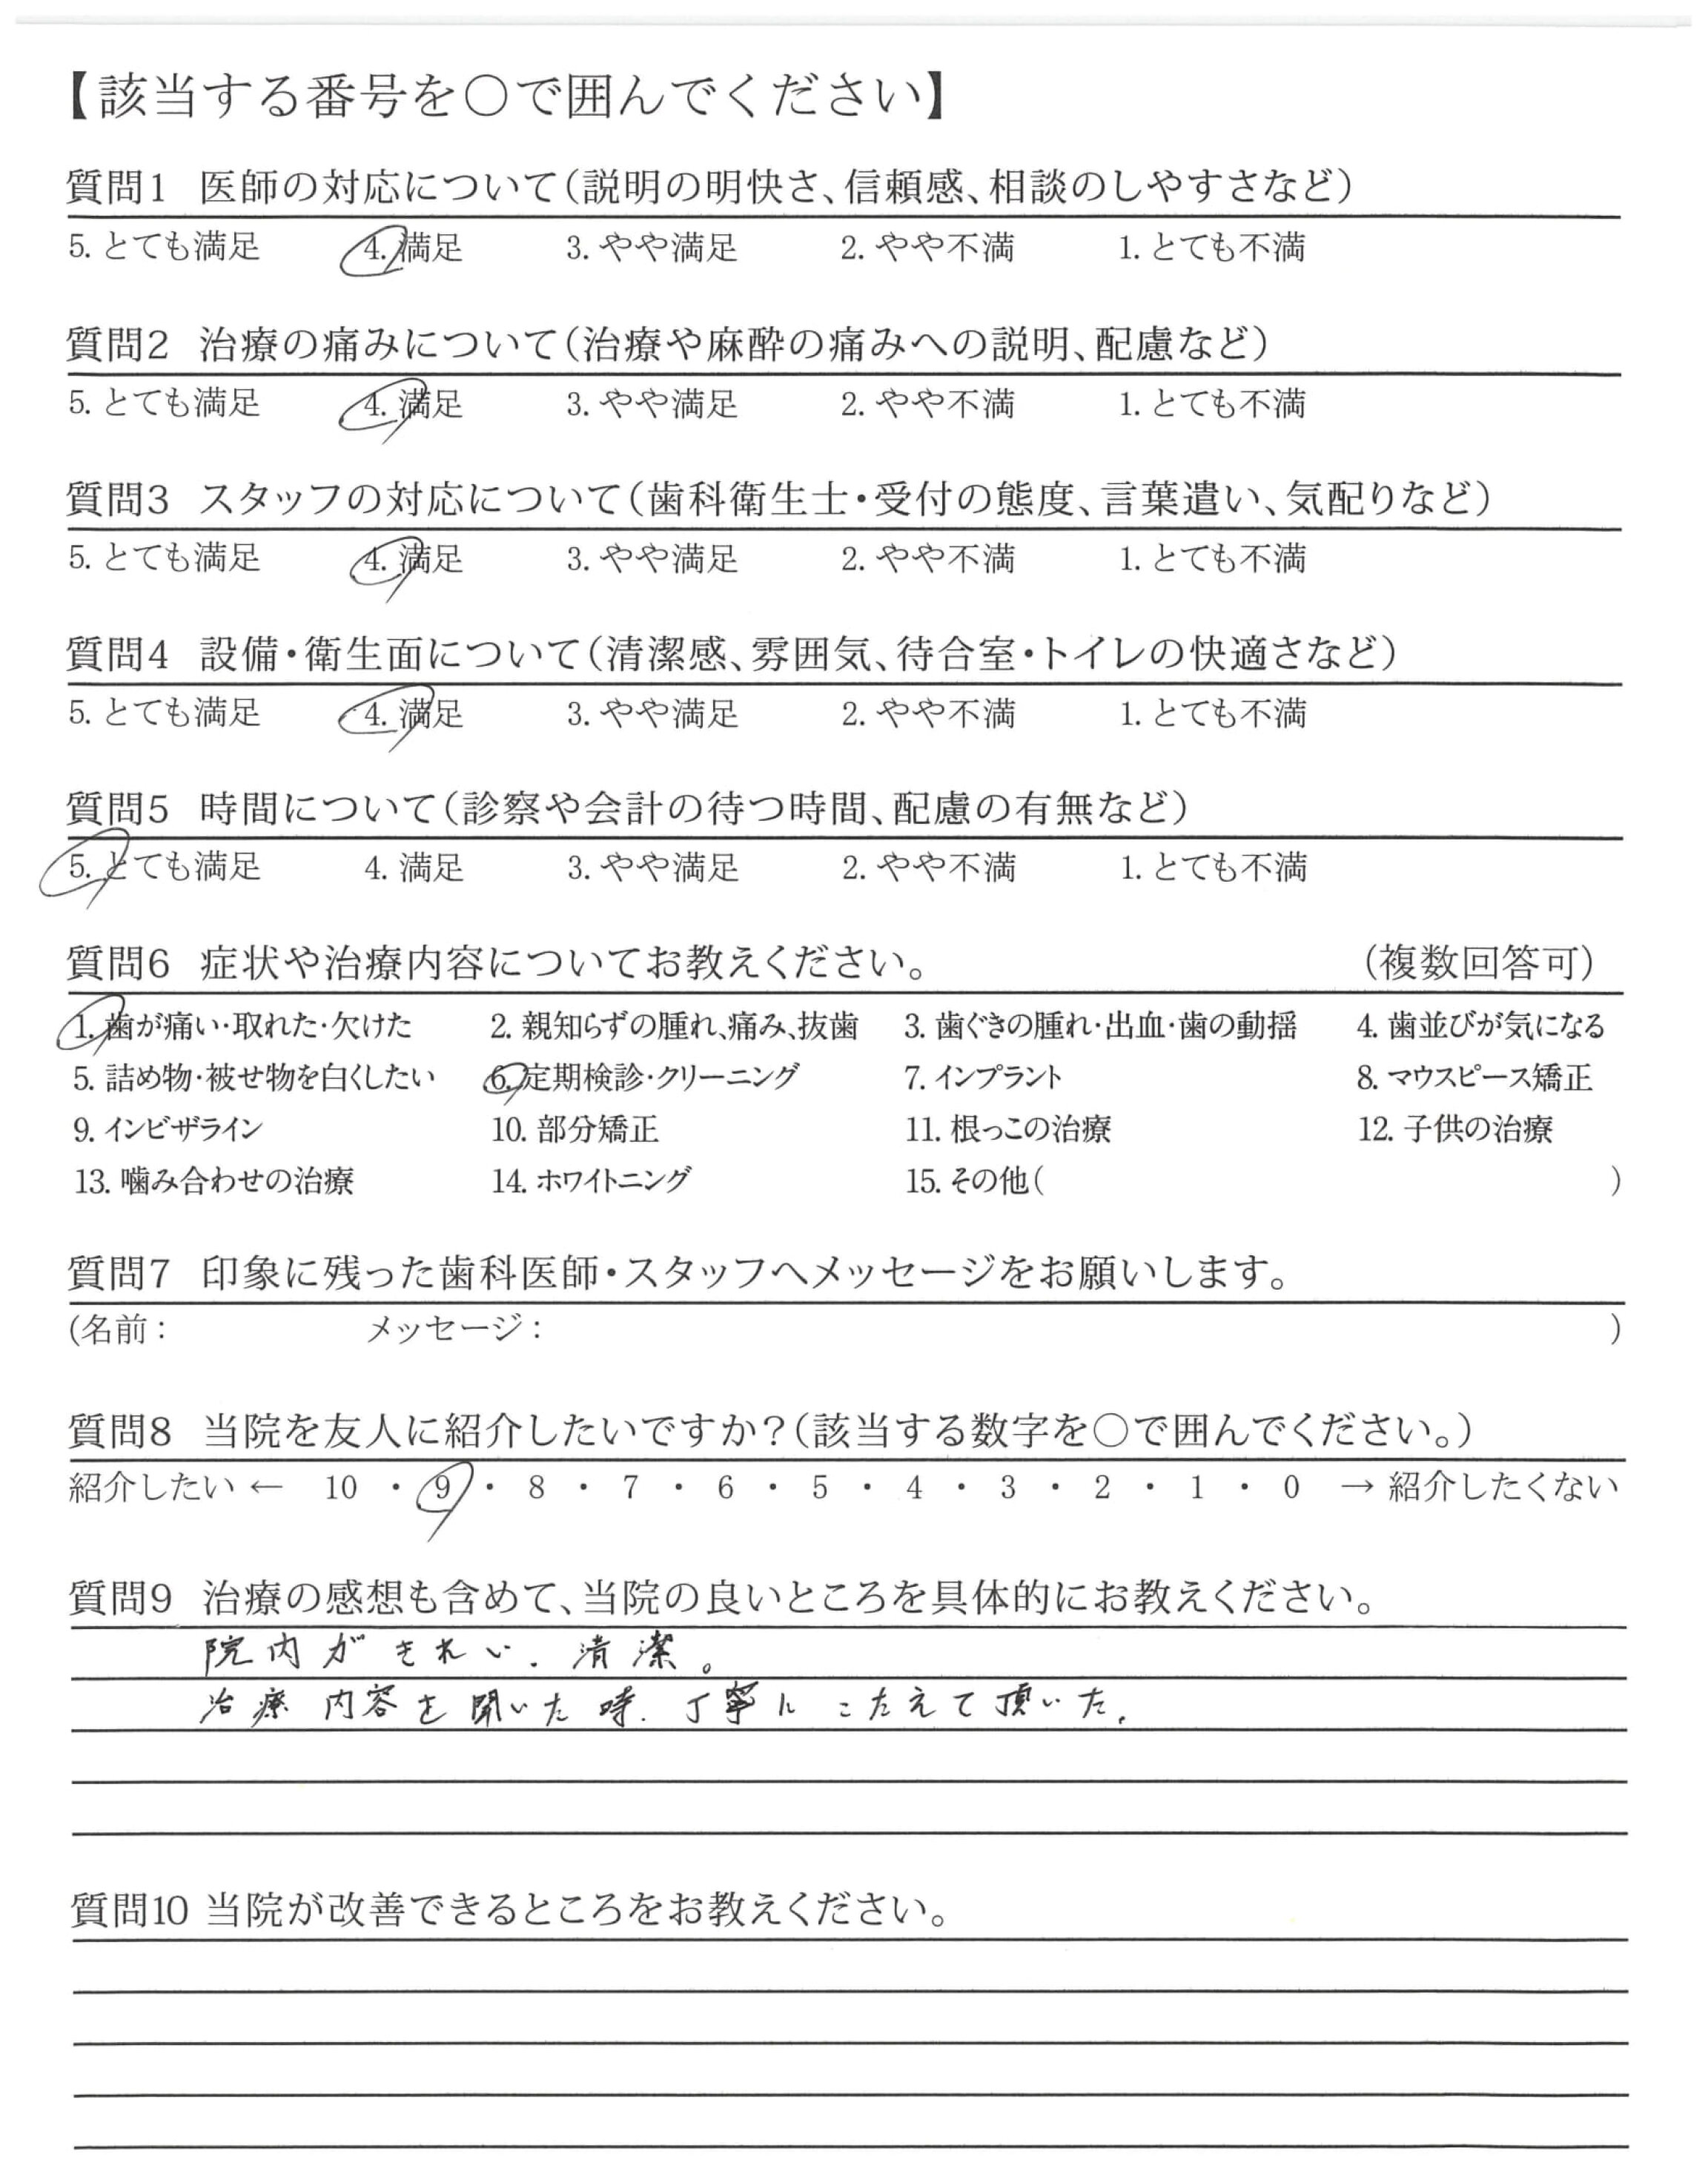 【該当する番号を○で囲んでください】
質問1 医師の対応について（説明の明快さ、信頼感、相談のしやすさなど）
5. とても満足 4. 満足 3. やや満足 2. やや不満 1. とても不満
質問2 治療の痛みについて（治療や麻酔の痛みへの説明、配慮など）
5. とても満足 4. 満足 3. やや満足 2. やや不満 1. とても不満
質問3 スタッフの対応について（歯科衛生士・受付の態度、言葉遣い、気配りなど）
5. とても満足 4. 満足 3. やや満足 2. やや不満 1. とても不満
質問4 設備・衛生面について（清潔感、雰囲気、待合室・トイレの快適さなど）
5. とても満足 4. 満足 3. やや満足 2. やや不満 1. とても不満
質問5 時間について（診察や会計の待つ時間、配慮の有無など）
5. とても満足 4. 満足 3. やや満足 2. やや不満 1. とても不満
質問6 症状や治療内容についてお教えください。 （複数回答可）
1. 歯が痛い・取れた・欠けた 2. 親知らずの腫れ、痛み、抜歯 3. 歯ぐきの腫れ・出血・歯の動揺 4. 歯並びが気になる
5. 詰め物・被せ物を白くしたい 6. 定期検診・クリーニング 7. インプラント 8. マウスピース矯正
9. インビザライン 10. 部分矯正 11. 根っこの治療 12. 子供の治療
13. 噛み合わせの治療 14. ホワイトニング 15. その他( )
質問7 印象に残った歯科医師・スタッフへメッセージをお願いします。
(名前： メッセージ： )
質問8 当院を友人に紹介したいですか？（該当する数字を○で囲んでください。）
紹介したい ← 10 ・ 9 ・ 8 ・ 7 ・ 6 ・ 5 ・ 4 ・ 3 ・ 2 ・ 1 ・ 0 → 紹介したくない
質問9 治療の感想も含めて、当院の良いところを具体的にお教えください。
院内がきれい. 清潔。
治療内容を聞いた時. 丁寧にこたえて頂いた.
質問10 当院が改善できるところをお教えください。